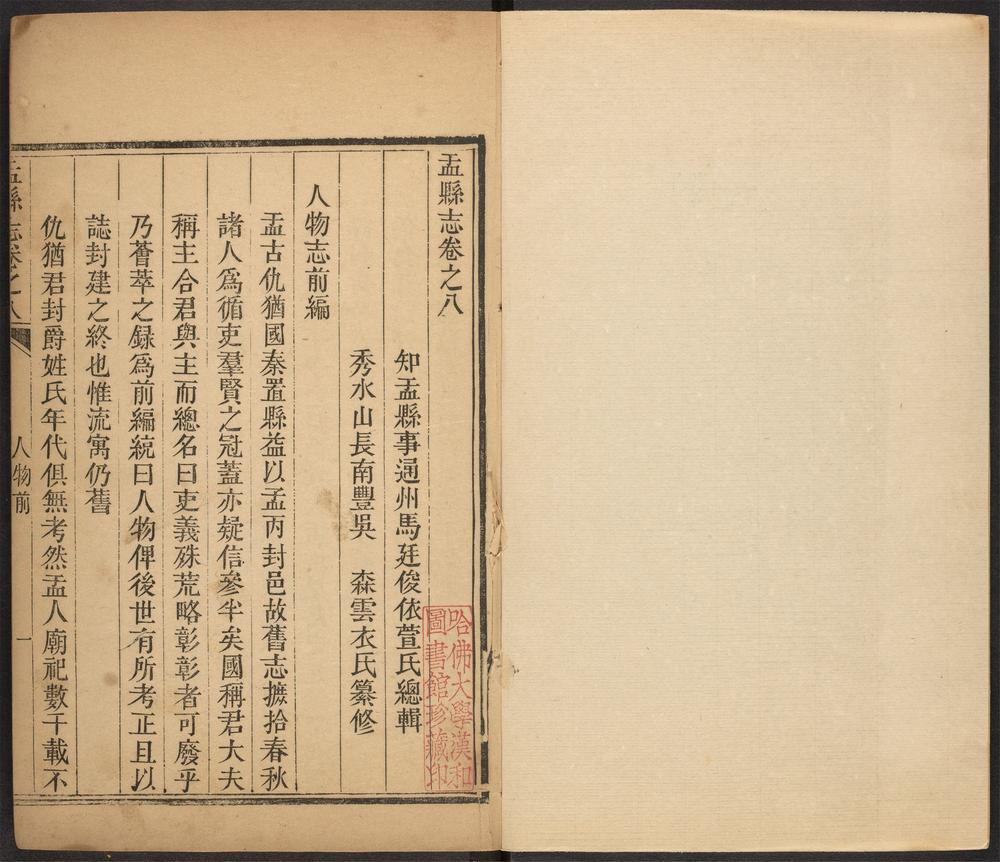 盂縣志卷之八
知盂縣事通州馬廷俊依萱氏總輯
秀水山長南豐吳 森雲衣氏纂修
人物志前編
盂古仇猶國秦置縣益以孟丙封邑故舊志摭拾春秋
諸人爲循吏羣賢之冠蓋亦疑信參半矣國稱君大夫
稱主合君與主而總名曰吏義殊荒略彰彰者可廢乎
乃薈萃之録爲前編統曰人物俾後世有所考正且以
誌封建之終也惟流寓仍舊
仇猶君封爵姓氏年代俱無考然盂人廟祀數千載不
盂縣志卷之八
人物前
一
哈佛大學漢和
圖書館珍藏印